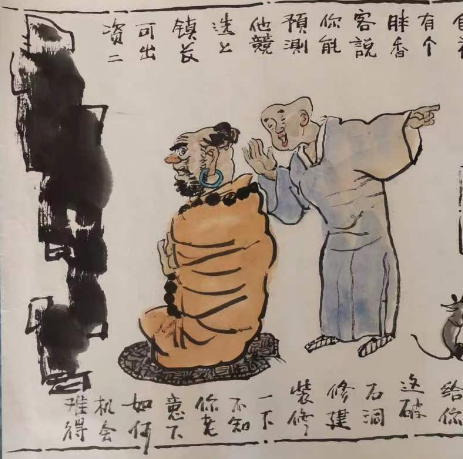 有个
胖香
客說
你能
預測
他競
选上
镇长
可出
资二
给你
这破
石洞
修建
裝修
一下
不知
你老
意下
如何
机会
难得